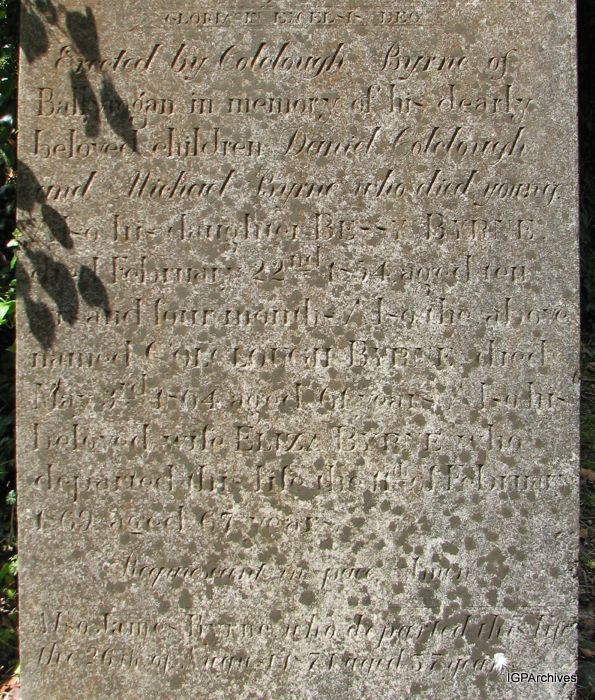 GLORIA IN EXCELSIS DEO
Erected by Colclough Byrne of
Ballyrogan in memory of his dearly
beloved children Daniel Colclough
and Michael Byrne who died young
Also his daughter BESSY BYRNE
died February 22nd 1854 aged ten
and four months Also the above
named COLCLOUGH BYRNE died
May 3rd 1864 aged 61 years Also his
beloved wife ELIZA BYRNE who
departed this life the 11th of February
1869 aged 67 years
Requiescant in pace Amen
Also James Byrne who departed this life
the 26th of August 1871 aged 37 years
IGPArchives